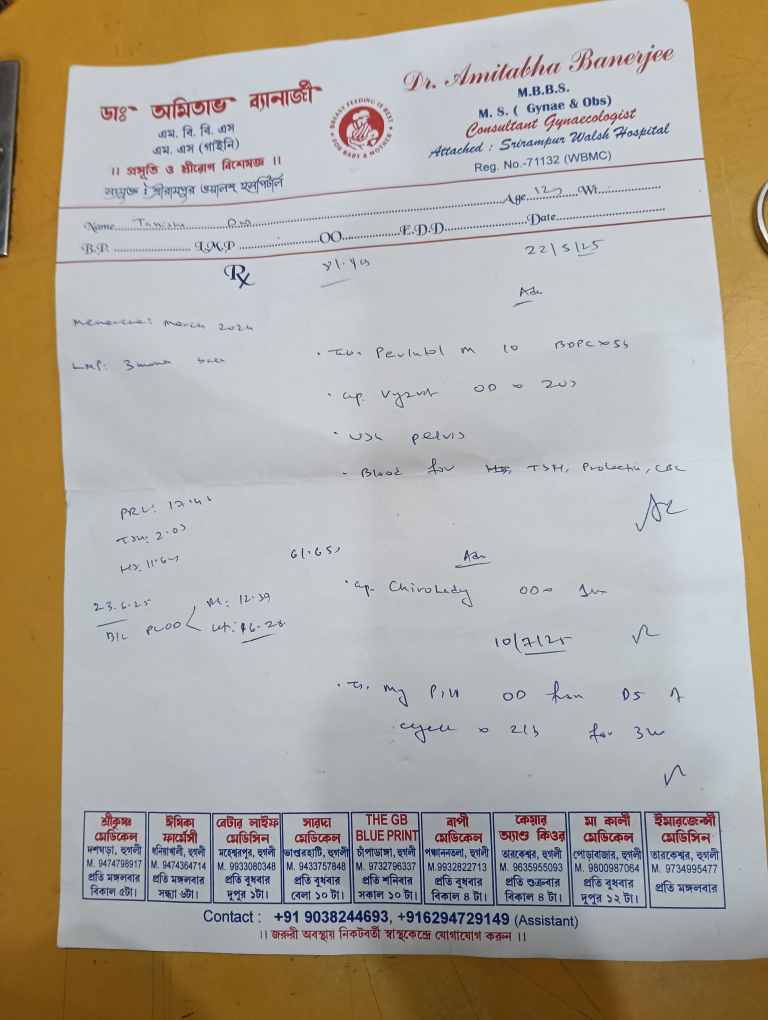 ডাঃ অমিতাভ ব্যানার্জী
এম. বি. বি. এস
এম. এস (গাইনি)
।। প্রসূতি ও স্ত্রীরোগ বিশেষজ্ঞ ।।
সংযুক্ত : শ্রীরামপুর ওয়ালশ হসপিটাল
BREAST FEEDING IS BEST FOR BABY & MOTHER
Dr. Amitabha Banerjee
M.B.B.S.
M. S. ( Gynae & Obs)
Consultant Gynaecologist
Attached : Srirampur Walsh Hospital
Reg. No.-71132 (WBMC)
Name Age 12y Wt
B.P. L.M.P. OO E.D.D. Date
Rx
22/5/25
Adv
Menarche: March 2024
LMP: 3 month back
M 10
OD x 20
USG pelvis
Blood for TSH, Prolactin, CBC
PRL: 17.41
TSH: 2.03
61.65
Adv
Cap. OD x
23.6.25
B/L PCOD
Rt: 12.39
Lt: 16.28
10/7/25
My Pill OD from D5 of
cycle x 21 for 3
শ্রীকৃষ্ণ মেডিকেল
দশঘড়া, হুগলী
M. 9474798917
প্রতি মঙ্গলবার
বিকাল ৫টা।
ঈপিকা ফার্মেসী
ধনিয়াখালী, হুগলী
M. 9474364714
প্রতি মঙ্গলবার
সন্ধ্যা ৬টা।
বেটার লাইফ মেডিসিন
মহেশ্বরপুর, হুগলী
M. 9933080348
প্রতি বুধবার
দুপুর ১টা।
সারদা মেডিকেল
ভাণ্ডারহাটি, হুগলী
M. 9433757848
প্রতি বুধবার
বেলা ১০ টা।
THE GB BLUE PRINT
চাঁপাডাঙ্গা, হুগলী
M. 9732796337
প্রতি শনিবার
সকাল ১০ টা।
বাপী মেডিকেল
পঞ্চাননতলা, হুগলী
M. 9932822713
প্রতি বুধবার
বিকাল ৪ টা।
কেয়ার অ্যাণ্ড কিওর
তারকেশ্বর, হুগলী
M. 9635955093
প্রতি শুক্রবার
বিকাল ৪ টা।
মা কালী মেডিকেল
পোড়াবাজার, হুগলী
M. 9800987064
প্রতি বুধবার
দুপুর ১২ টা।
ইমারজেন্সী মেডিসিন
তারকেশ্বর, হুগলী
M. 9734995477
প্রতি মঙ্গলবার
Contact : +91 9038244693, +916294729149 (Assistant)
।। জরুরী অবস্থায় নিকটবর্তী স্বাস্থকেন্দ্রে যোগাযোগ করুন ।।